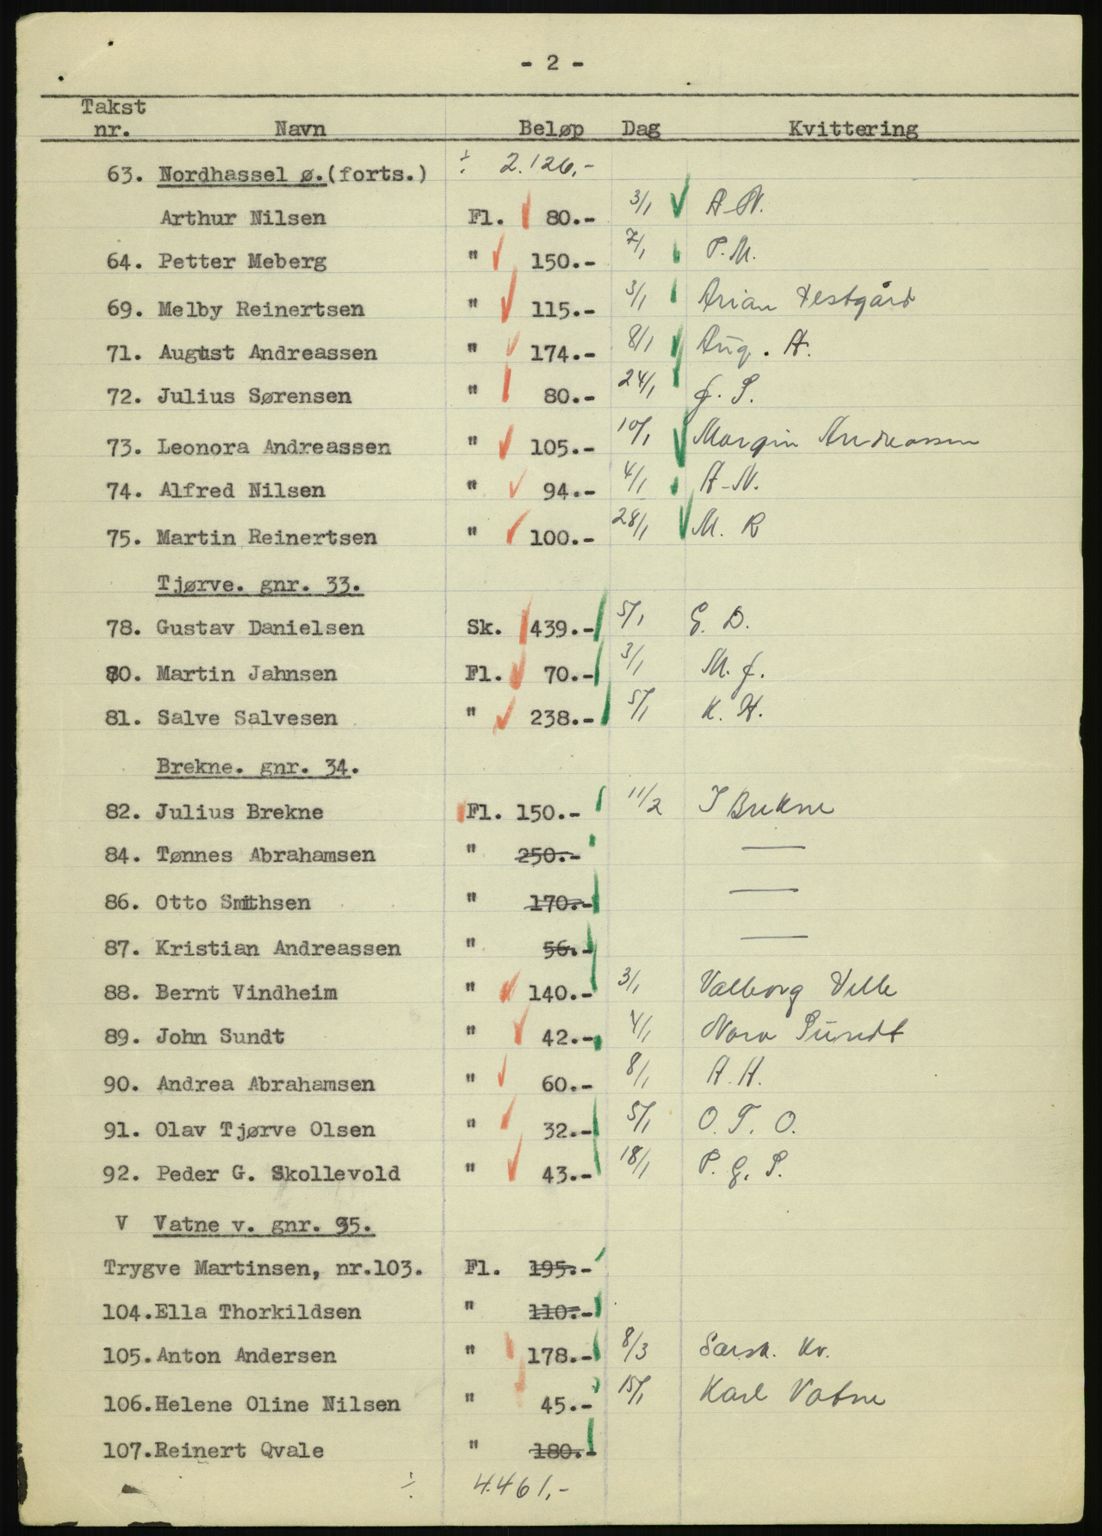 - 2 -
Takst nr. Navn Beløp Dag Kvittering
63. Nordhassel ø.(forts.) ÷ 2.126,-
Arthur Nilsen Fl. 80.- 3/1 A-N.
64. Petter Meberg " 150.- 7/1 P.M.
69. Melby Reinertsen " 115.- 3/1 Arian Vestgård
71. August Andreassen " 174.- 8/1 Aug. A.
72. Julius Sørensen " 80.- 24/1 J. S.
73. Leonora Andreassen " 105.- 10/1 Margin Andreassen
74. Alfred Nilsen " 94.- 4/1 A-N.
75. Martin Reinertsen " 100.- 28/1 M. R
Tjørve. gnr. 33.
78. Gustav Danielsen Sk. 439.- 5/1 G. D.
80. Martin Jahnsen Fl. 70.- 3/1 M. J.
81. Salve Salvesen " 238.- 5/1
Brekne. gnr. 34.
82. Julius Brekne Fl. 150.- 11/2 J Brekne
84. Tønnes Abrahamsen " 250.- —
86. Otto Smithsen " 170.- —
87. Kristian Andreassen " 56.- —
88. Bernt Vindheim " 140.- 3/1 Valborg
89. John Sundt " 42.- 4/1 Nora Sundt
90. Andrea Abrahamsen " 60.- 8/1 A. A.
91. Olav Tjørve Olsen " 32.- 5/1 O. T. O.
92. Peder G. Skollevold " 43.- 18/1 P. G. S.
V Vatne v. gnr. 35.
Trygve Martinsen, nr.103. Fl. 195.-
104.Ella Thorkildsen " 110.-
105.Anton Andersen " 178.- 8/3 Særsk. kv.
106.Helene Oline Nilsen " 45.- 15/1 Karl Vatne
107.Reinert Qvale " 180.-
÷ 4.461,-